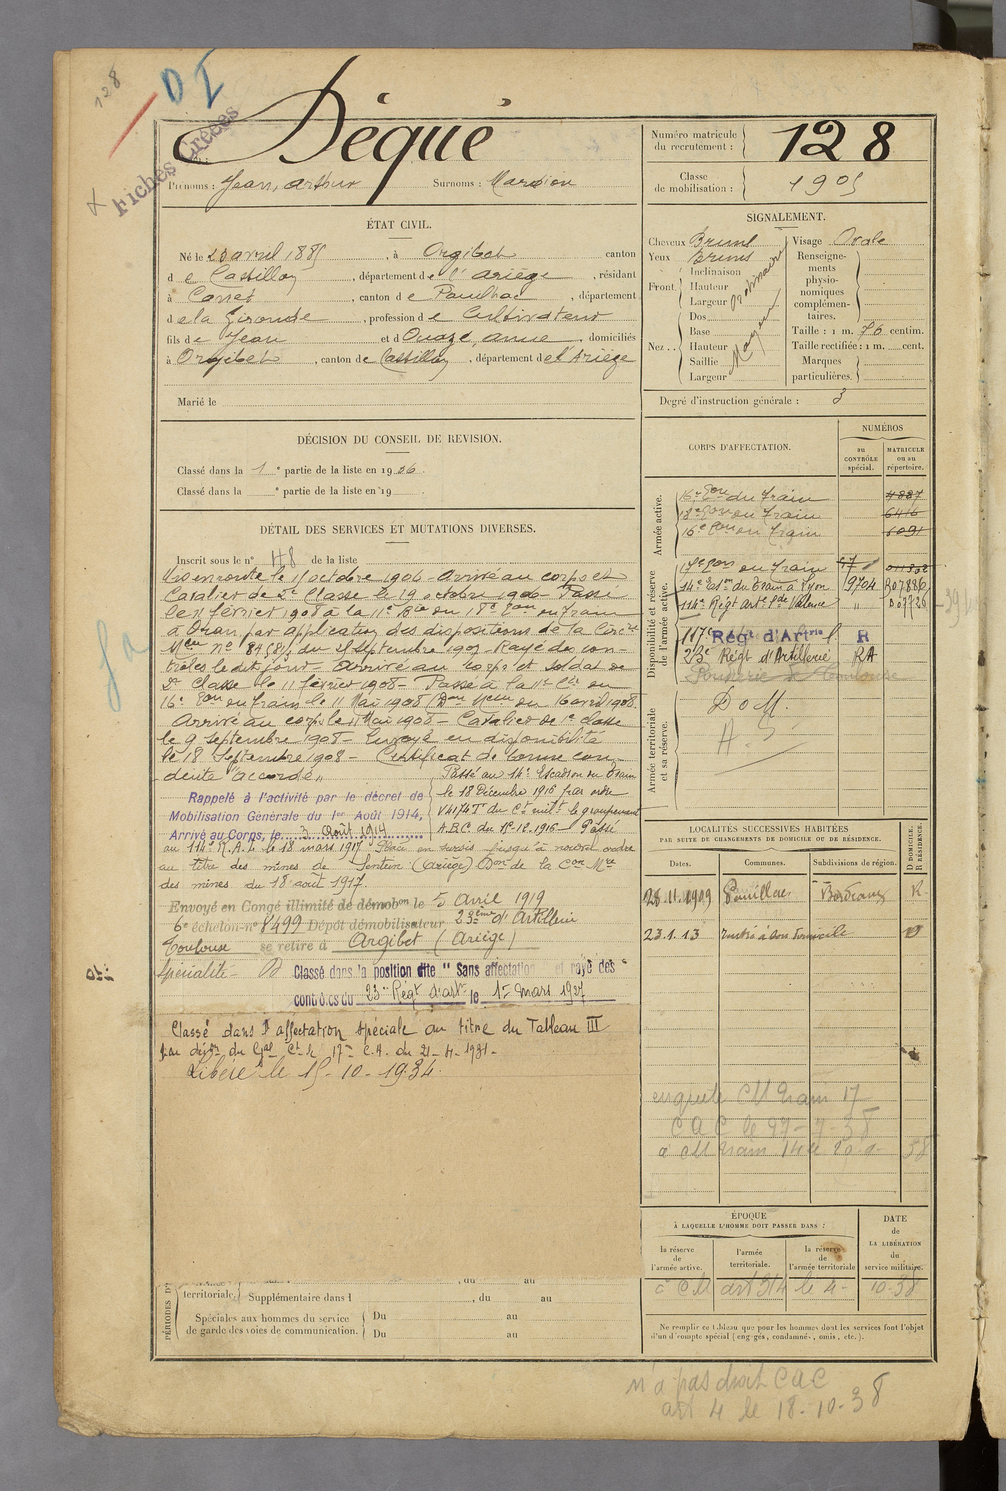 128
D I
Fiches Créées
Déqué
Numéro matricule du recrutement : 128
Prénoms : Jean, Arthur Surnoms :
Classe de mobilisation : 1905
ÉTAT CIVIL.
Né le 20 avril 1885, à Orgibet canton
de Castillon, département de l'Ariège, résidant
à , canton de Pauillac, département
de la Gironde, profession de Cultivateur
fils de Jean et d , domiciliés
à Orgibet, canton de Castillon, département de l'Ariège
Marié le
SIGNALEMENT.
Cheveux Bruns
Yeux Bruns
Front. Inclinaison
Hauteur
Largeur Ordinaire
Nez. Dos
Base
Hauteur
Saillie
Largeur Moyen
Visage Ovale
Renseignements physionomiques complémentaires.
Taille : 1 m. 76 centim.
Taille rectifiée : 1 m. cent.
Marques particulières.
Degré d'instruction générale : 3
DÉCISION DU CONSEIL DE REVISION.
Classé dans la 1e partie de la liste en 1906.
Classé dans la e partie de la liste en 19
DÉTAIL DES SERVICES ET MUTATIONS DIVERSES.
Inscrit sous le n° 48 de la liste
Mis en route le octobre 1906 - Arrivé au corps et
Cavalier de 2e Classe le octobre 1906 - Passé
le 11 février 1908 à la 11e Cie du 18e Eon du train
à Oran par application des dispositions de la Circre
Melle n° du Septembre 1907 - Rayé des con-
trôles le dit jour - Arrivé au corps et soldat de
2e Classe le 11 février 1908 - Passé à la 11e Cie du
16e Eon du train le 11 Mai 1908 (Don Melle du 16 avril 1908
Arrivé au corps le 11 Mai 1908 - Cavalier de 1e classe
le 9 Septembre 1908 - Envoyé en disponibilité
le 18 Septembre 1908 - Certificat de bonne con-
duite "accordé"
Rappelé à l'activité par le décret de
Mobilisation Générale du 1er Août 1914,
Arrivé au Corps, le 3 Août 1914
Passé au 14e Escadron du Train
le 18 Décembre 1916 par ordre
V4174T du Ct milt le groupement
A.B.C. du 12-1916 - Passé
au 114e R.A.L. le 18 mars 1917. Placé en sursis jusqu'à nouvel ordre
au titre des mines de Sentein (Ariège) Don de la Con Mre
des mines du 18 août 1917.
Envoyé en Congé illimité de démobon le 5 Avril 1919
6e échelon-n° 8499 Dépôt démobilisateur 23ème d'Artillerie
Toulouse se retire à Orgibet (Ariège)
Spécialité -
Classé dans la position dite "Sans affectation" et rayé des
contrôles du 23e Régt d'Artie le 1er mars 1927
Classé dans l'affectation spéciale au titre du Tableau III
par décon du Gal Ct le 17e C.A. du 21-4-1931-
Libéré le 15-10-1934.
CORPS D'AFFECTATION.
NUMÉROS
au CONTRÔLE spécial.
MATRICULE ou au répertoire.
Armée active.
16e Eon du train 4887
18e Eon du train 6416
16e Eon du train 6091
Disponibilité et réserve de l'armée active.
Eon du train
14e Eson du Train à Lyon 9704 R07886
114e Régt Artie Valence " D07726
117e Régt d'Artie R
23e Régt d'Artillerie RA
Poudrerie de Toulouse
Armée territoriale et sa réserve.
D o M.
A. S
LOCALITÉS SUCCESSIVES HABITÉES
PAR SUITE DE CHANGEMENTS DE DOMICILE OU DE RÉSIDENCE.
Dates. Communes. Subdivisions de région. D DOMICILE. R RÉSIDENCE.
28.11.1909 Pauillac Bordeaux R
23.1.13 rentré à son domicile D
enquête
CAC le
ÉPOQUE
À LAQUELLE L'HOMME DOIT PASSER DANS :
la réserve de l'armée active.
l'armée territoriale.
la réserve de l'armée territoriale
DATE de LA LIBÉRATION du service militaire.
PÉRIODES D'
territoriale. Supplémentaire dans l , du au
Spéciales aux hommes du service de garde des voies de communication. Du au
Du au
Ne remplir ce tableau que pour les hommes dont les services font l'objet
d'un décompte spécial (engagés, condamnés, omis, etc.).
n'a pas droit CAC
art 4 le 18-10-38